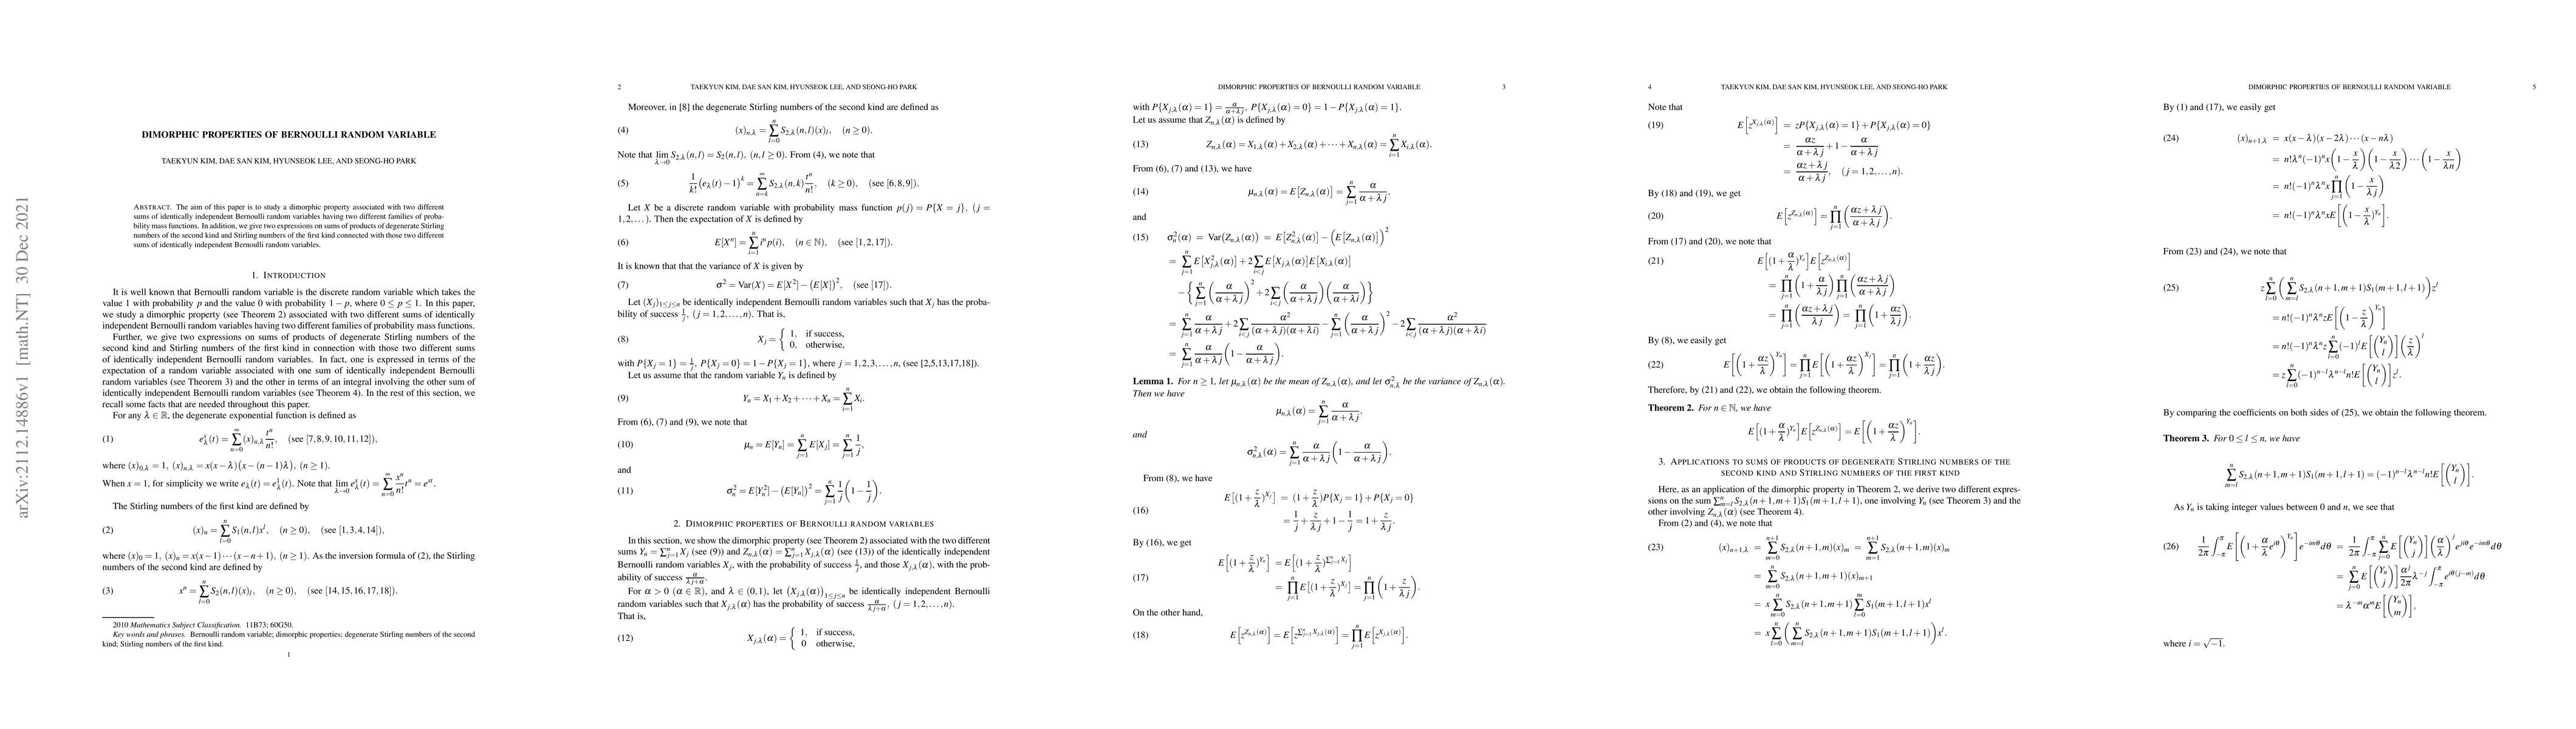 arXiv:2112.14886v1 [math.NT] 30 Dec 2021
DIMORPHIC PROPERTIES OF BERNOULLI RANDOM VARIABLE
TAEKYUN KIM, DAE SAN KIM, HYUNSEOK LEE, AND SEONG-HO PARK
ABSTRACT. The aim of this paper is to study a dimorphic property associated with two different
sums of identically independent Bernoulli random variables having two different families of proba-
bility mass functions. In addition, we give two expressions on sums of products of degenerate Stirling
numbers of the second kind and Stirling numbers of the first kind connected with those two different
sums of identically independent Bernoulli random variables.
1. INTRODUCTION
It is well known that Bernoulli random variable is the discrete random variable which takes the
value 1 with probability p and the value 0 with probability 1 − p, where 0 ≤ p ≤ 1. In this paper,
we study a dimorphic property (see Theorem 2) associated with two different sums of identically
independent Bernoulli random variables having two different families of probability mass functions.
Further, we give two expressions on sums of products of degenerate Stirling numbers of the
second kind and Stirling numbers of the first kind in connection with those two different sums
of identically independent Bernoulli random variables. In fact, one is expressed in terms of the
expectation of a random variable associated with one sum of identically independent Bernoulli
random variables (see Theorem 3) and the other in terms of an integral involving the other sum of
identically independent Bernoulli random variables (see Theorem 4). In the rest of this section, we
recall some facts that are needed throughout this paper.
For any λ ∈ ℝ, the degenerate exponential function is defined as
(1) e_λ^x(t) = ∑_{n=0}^∞ (x)_{n,λ} t^n/n!, (see [7,8,9,10,11,12]),
where (x)_{0,λ} = 1, (x)_{n,λ} = x(x−λ)(x−(n−1)λ), (n ≥ 1).
When x = 1, for simplicity we write e_λ(t) = e_λ^1(t). Note that lim_{λ→0} e_λ^x(t) = ∑_{n=0}^∞ x^n/n! t^n = e^{xt}.
The Stirling numbers of the first kind are defined by
(2) (x)_n = ∑_{l=0}^n S_1(n,l)x^l, (n ≥ 0), (see [1,3,4,14]),
where (x)_0 = 1, (x)_n = x(x−1)⋯(x−n+1), (n ≥ 1). As the inversion formula of (2), the Stirling
numbers of the second kind are defined by
(3) x^n = ∑_{l=0}^n S_2(n,l)(x)_l, (n ≥ 0), (see [14,15,16,17,18]).
2010 Mathematics Subject Classification. 11B73; 60G50.
Key words and phrases. Bernoulli random variable; dimorphic properties; degenerate Stirling numbers of the second
kind; Stirling numbers of the first kind.
1
2 TAEKYUN KIM, DAE SAN KIM, HYUNSEOK LEE, AND SEONG-HO PARK
Moreover, in [8] the degenerate Stirling numbers of the second kind are defined as
(4) (x)_{n,λ} = ∑_{l=0}^n S_{2,λ}(n,l)(x)_l, (n ≥ 0).
Note that lim_{λ→0} S_{2,λ}(n,l) = S_2(n,l), (n,l ≥ 0). From (4), we note that
(5) 1/k! (e_λ(t)−1)^k = ∑_{n=k}^∞ S_{2,λ}(n,k) t^n/n!, (k ≥ 0), (see [6,8,9]).
Let X be a discrete random variable with probability mass function p(j) = P{X = j}, (j =
1,2,...). Then the expectation of X is defined by
(6) E[X^n] = ∑_{i=1}^n i^n p(i), (n ∈ ℕ), (see [1,2,17]).
It is known that that the variance of X is given by
(7) σ² = Var(X) = E[X²] − (E[X])², (see [17]).
Let (X_j)_{1≤j≤n} be identically independent Bernoulli random variables such that X_j has the proba-
bility of success 1/j, (j = 1,2,...,n). That is,
(8) X_j = { 1, if success,
0, otherwise,
with P{X_j = 1} = 1/j, P{X_j = 0} = 1 − P{X_j = 1}, where j = 1,2,3,...,n, (see [2,5,13,17,18]).
Let us assume that the random variable Y_n is defined by
(9) Y_n = X_1 + X_2 + ⋯ + X_n = ∑_{i=1}^n X_i.
From (6), (7) and (9), we note that
(10) μ_n = E[Y_n] = ∑_{j=1}^n E[X_j] = ∑_{j=1}^n 1/j,
and
(11) σ_n² = E[Y_n²] − (E[Y_n])² = ∑_{j=1}^n 1/j (1 − 1/j).
2. DIMORPHIC PROPERTIES OF BERNOULLI RANDOM VARIABLES
In this section, we show the dimorphic property (see Theorem 2) associated with the two different
sums Y_n = ∑_{j=1}^n X_j (see (9)) and Z_{n,λ}(α) = ∑_{j=1}^n X_{j,λ}(α) (see (13)) of the identically independent
Bernoulli random variables X_j, with the probability of success 1/j, and those X_{j,λ}(α), with the prob-
ability of success α/(λj+α).
For α > 0 (α ∈ ℝ), and λ ∈ (0,1), let (X_{j,λ}(α))_{1≤j≤n} be identically independent Bernoulli
random variables such that X_{j,λ}(α) has the probability of success α/(λj+α), (j = 1,2,...,n).
That is,
(12) X_{j,λ}(α) = { 1, if success,
0 otherwise,
DIMORPHIC PROPERTIES OF BERNOULLI RANDOM VARIABLE 3
with P{X_{j,λ}(α) = 1} = α/(α+λj), P{X_{j,λ}(α) = 0} = 1 − P{X_{j,λ}(α) = 1}.
Let us assume that Z_{n,λ}(α) is defined by
(13) Z_{n,λ}(α) = X_{1,λ}(α) + X_{2,λ}(α) + ⋯ + X_{n,λ}(α) = ∑_{i=1}^n X_{i,λ}(α).
From (6), (7) and (13), we have
(14) μ_{n,λ}(α) = E[Z_{n,λ}(α)] = ∑_{j=1}^n α/(α+λj),
and
(15) σ_n²(α) = Var(Z_{n,λ}(α)) = E[Z²_{n,λ}(α)] − (E[Z_{n,λ}(α)])²
= ∑_{j=1}^n E[X²_{j,λ}(α)] + 2∑_{i<j} E[X_{j,λ}(α)]E[X_{i,λ}(α)]
− {∑_{j=1}^n (α/(α+λj))² + 2∑_{i<j} (α/(α+λj))(α/(α+λi))}
= ∑_{j=1}^n α/(α+λj) + 2∑_{i<j} α²/((α+λj)(α+λi)) − ∑_{j=1}^n (α/(α+λj))² − 2∑_{i<j} α²/((α+λj)(α+λi))
= ∑_{j=1}^n α/(α+λj) (1 − α/(α+λj)).
Lemma 1. For n ≥ 1, let μ_{n,λ}(α) be the mean of Z_{n,λ}(α), and let σ²_{n,λ} be the variance of Z_{n,λ}(α).
Then we have
μ_{n,λ}(α) = ∑_{j=1}^n α/(α+λj),
and
σ²_{n,λ}(α) = ∑_{j=1}^n α/(α+λj) (1 − α/(α+λj)).
From (8), we have
(16) E[(1+z/λ)^{X_j}] = (1+z/λ)P{X_j = 1} + P{X_j = 0}
= 1/j + z/(λj) + 1 − 1/j = 1 + z/(λj).
By (16), we get
(17) E[(1+z/λ)^{Y_n}] = E[(1+z/λ)^{∑_{j=1}^n X_j}]
= ∏_{j=1}^n E[(1+z/λ)^{X_j}] = ∏_{j=1}^n (1+z/(λj)).
On the other hand,
(18) E[z^{Z_{n,λ}(α)}] = E[z^{∑_{j=1}^n X_{j,λ}(α)}] = ∏_{j=1}^n E[z^{X_{j,λ}(α)}].
4 TAEKYUN KIM, DAE SAN KIM, HYUNSEOK LEE, AND SEONG-HO PARK
Note that
(19) E[z^{X_{j,λ}(α)}] = zP{X_{j,λ}(α) = 1} + P{X_{j,λ}(α) = 0}
= αz/(α+λj) + 1 − α/(α+λj)
= (αz+λj)/(α+λj), (j = 1,2,...,n).
By (18) and (19), we get
(20) E[z^{Z_{n,λ}(α)}] = ∏_{j=1}^n ((αz+λj)/(α+λj)).
From (17) and (20), we note that
(21) E[(1+α/λ)^{Y_n}]E[z^{Z_{n,λ}(α)}]
= ∏_{j=1}^n (1+α/(λj)) ∏_{j=1}^n ((αz+λj)/(α+λj))
= ∏_{j=1}^n ((αz+λj)/(λj)) = ∏_{j=1}^n (1+αz/(λj)).
By (8), we easily get
(22) E[(1+αz/λ)^{Y_n}] = ∏_{j=1}^n E[(1+αz/λ)^{X_j}] = ∏_{j=1}^n (1+αz/(λj)).
Therefore, by (21) and (22), we obtain the following theorem.
Theorem 2. For n ∈ ℕ, we have
E[(1+α/λ)^{Y_n}]E[z^{Z_{n,λ}(α)}] = E[(1+αz/λ)^{Y_n}].
3. APPLICATIONS TO SUMS OF PRODUCTS OF DEGENERATE STIRLING NUMBERS OF THE
SECOND KIND AND STIRLING NUMBERS OF THE FIRST KIND
Here, as an application of the dimorphic property in Theorem 2, we derive two different expres-
sions on the sum ∑_{m=l}^n S_{2,λ}(n+1,m+1)S_1(m+1,l+1), one involving Y_n (see Theorem 3) and the
other involving Z_{n,λ}(α) (see Theorem 4).
From (2) and (4), we note that
(23) (x)_{n+1,λ} = ∑_{m=0}^{n+1} S_{2,λ}(n+1,m)(x)_m = ∑_{m=1}^{n+1} S_{2,λ}(n+1,m)(x)_m
= ∑_{m=0}^n S_{2,λ}(n+1,m+1)(x)_{m+1}
= x∑_{m=0}^n S_{2,λ}(n+1,m+1) ∑_{l=0}^m S_1(m+1,l+1)x^l
= x∑_{l=0}^n (∑_{m=l}^n S_{2,λ}(n+1,m+1)S_1(m+1,l+1))x^l.
DIMORPHIC PROPERTIES OF BERNOULLI RANDOM VARIABLE 5
By (1) and (17), we easily get
(24) (x)_{n+1,λ} = x(x−λ)(x−2λ)⋯(x−nλ)
= n!λ^n(−1)^n x(1−x/λ)(1−x/λ2)⋯(1−x/λn)
= n!(−1)^n λ^n x∏_{j=1}^n (1−x/(λj))
= n!(−1)^n λ^n xE[(1−x/λ)^{Y_n}].
From (23) and (24), we note that
(25) z∑_{l=0}^n (∑_{m=l}^n S_{2,λ}(n+1,m+1)S_1(m+1,l+1))z^l
= n!(−1)^n λ^n zE[(1−z/λ)^{Y_n}]
= n!(−1)^n λ^n z∑_{l=0}^n (−1)^l E[(Y_n choose l)](z/λ)^l
= z∑_{l=0}^n (−1)^{n−l} λ^{n−l} n!E[(Y_n choose l)]z^l.
By comparing the coefficients on both sides of (25), we obtain the following theorem.
Theorem 3. For 0 ≤ l ≤ n, we have
∑_{m=l}^n S_{2,λ}(n+1,m+1)S_1(m+1,l+1) = (−1)^{n−l} λ^{n−l} n!E[(Y_n choose l)].
As Y_n is taking integer values between 0 and n, we see that
(26) 1/2π ∫_{−π}^π E[(1+α/λ e^{iθ})^{Y_n}]e^{−imθ}dθ = 1/2π ∫_{−π}^π ∑_{j=0}^n E[(Y_n choose j)](α/λ)^j e^{ijθ}e^{−imθ}dθ
= ∑_{j=0}^n E[(Y_n choose j)] α^j/2π λ^{−j} ∫_{−π}^π e^{iθ(j−m)}dθ
= λ^{−m}α^m E[(Y_n choose m)],
where i = √−1.